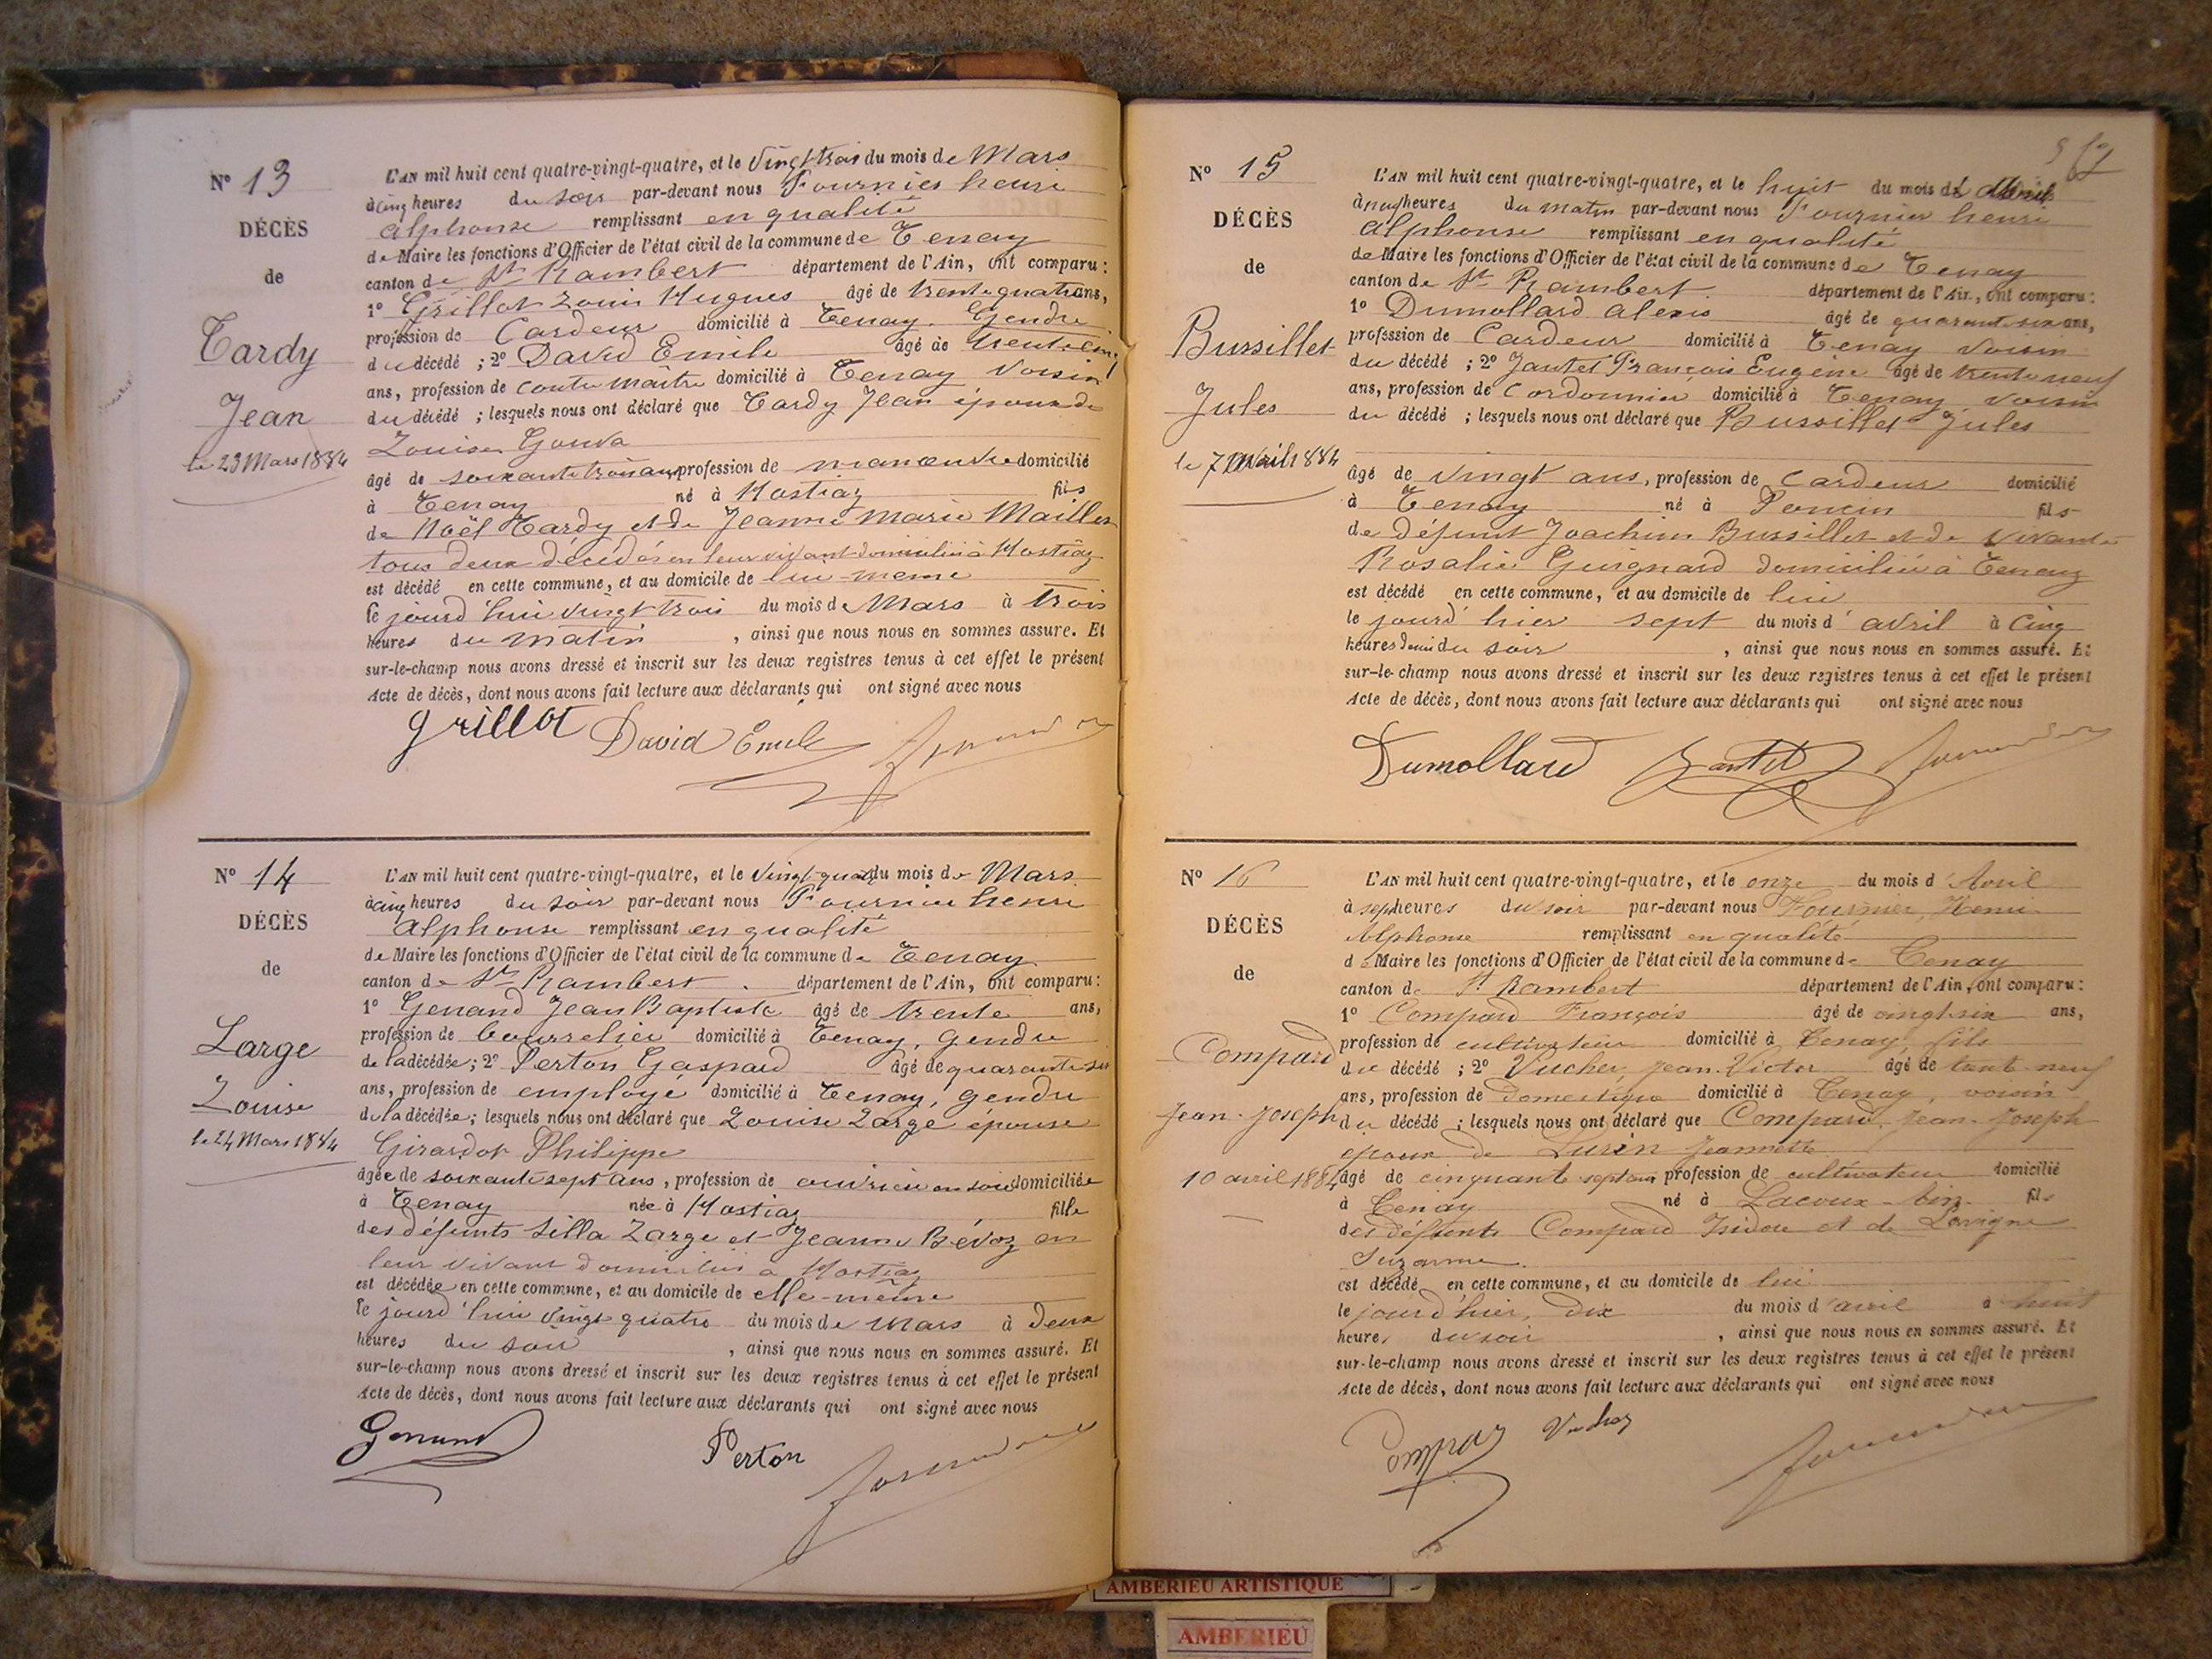 N° 13
DÉCÈS
de
Tardy
Jean
le 23 Mars 1884
L'AN mil huit cent quatre-vingt-quatre, et le vingt trois du mois de Mars
à cinq heures du soir par-devant nous Fournier henri
alphonse remplissant en qualité
de Maire les fonctions d'Officier de l'état civil de la commune de Tenay
canton de St Rambert département de l'Ain, ont comparu :
1° Grillot Louis Hugues âgé de trente quatre ans,
profession de Cardeur domicilié à Tenay. Gendre
du décédé ; 2° David Emile âgé de trente cinq
ans, profession de contre maître domicilié à Tenay Voisin
du décédé ; lesquels nous ont déclaré que Tardy Jean époux de
Louise Gouva
âgé de soixante trois ans profession de manœuvre domicilié
à Tenay né à Hostiaz fils
de Noël Tardy et de Jeanne Marie Maillet
tous deux décédés en leur vivant domiciliés à Hostiaz
est décédé en cette commune, et au domicile de lui-meme
le jourd'hui vingt trois du mois de Mars à trois
heures du matin , ainsi que nous nous en sommes assuré. Et
sur-le-champ nous avons dressé et inscrit sur les deux registres tenus à cet effet le présent
Acte de décès, dont nous avons fait lecture aux déclarants qui ont signé avec nous
grillot David Emile
N° 14
DÉCÈS
de
Large
Louise
le 24 Mars 1884
L'AN mil huit cent quatre-vingt-quatre, et le vingt-quatre du mois de Mars
à cinq heures du soir par-devant nous Fournier henri
Alphonse remplissant en qualité
de Maire les fonctions d'Officier de l'état civil de la commune de Tenay
canton de St Rambert . département de l'Ain, ont comparu :
1° Genand Jean Baptiste âgé de trente ans,
profession de bourrelier domicilié à Tenay, gendre
de la décédée ; 2° Perton Gaspard âgé de quarante six
ans, profession de employé domicilié à Tenay, gendre
de la décédée ; lesquels nous ont déclaré que Louise Large épouse
Girardot Philippe
âgée de soixante sept ans, profession de ouvrière en soie domiciliée
à Tenay née à Hostiaz fille
des défunts Silla Large et Jeanne Bévoz en
leur vivant domiciliés a Hostiaz
est décédée en cette commune, et au domicile de elle-même
le jourd'hui vingt quatre du mois de Mars à deux
heures du soir , ainsi que nous nous en sommes assuré. Et
sur-le-champ nous avons dressé et inscrit sur les deux registres tenus à cet effet le présent
Acte de décès, dont nous avons fait lecture aux déclarants qui ont signé avec nous
Genand Perton
N° 15
DÉCÈS
de
Bussillet
Jules
le 7 Avril 1884
L'AN mil huit cent quatre-vingt-quatre, et le huit du mois d'Avril
à neuf heures du matin par-devant nous Fournier henri
Alphonse remplissant en qualité
de Maire les fonctions d'Officier de l'état civil de la commune de Tenay
canton de St Rambert. département de l'Ain, ont comparu :
1° Dumollard alexis âgé de quarante six ans,
profession de Cardeur domicilié à Tenay Voisin
du décédé ; 2° Jantet François Eugène âgé de trente neuf
ans, profession de Cordonnier domicilié à Tenay, voisin
du décédé ; lesquels nous ont déclaré que Bussillet Jules
âgé de vingt ans, profession de Cardeur domicilié
à Tenay né à Poncin fils
de défunt Joachim Bussillet et de vivante
Rosalie Guignard domiciliée à Tenay
est décédé en cette commune, et au domicile de lui
le jourd'hier sept du mois d'avril à Cinq
heures demi du soir , ainsi que nous nous en sommes assuré. Et
sur-le-champ nous avons dressé et inscrit sur les deux registres tenus à cet effet le présent
Acte de décès, dont nous avons fait lecture aux déclarants qui ont signé avec nous
Dumollard Jantet
N° 16
DÉCÈS
de
Compard
Jean-Joseph
10 avril 1884
L'AN mil huit cent quatre-vingt-quatre, et le onze du mois d'Avril
à sept heures du soir par-devant nous Fournier, Henri
Alphonse remplissant en qualité
de Maire les fonctions d'Officier de l'état civil de la commune de Tenay
canton de St Rambert département de l'Ain, ont comparu :
1° Compard François âgé de vingt-six ans,
profession de cultivateur domicilié à Tenay, fils
du décédé ; 2° Vucher Jean-Victor âgé de trente-neuf
ans, profession de Domestique domicilié à Tenay, voisin
du décédé ; lesquels nous ont déclaré que Compard, Jean-Joseph
époux de Lurin Jeannette
âgé de cinquante sept ans profession de cultivateur domicilié
à Tenay né à Lacoux fils
des défunts Compard Isidore et de Lavigne
Suzanne.
est décédé en cette commune, et au domicile de lui
le jourd'hier, dix du mois d'avril à huit
heures du soir , ainsi que nous nous en sommes assuré. Et
sur-le-champ nous avons dressé et inscrit sur les deux registres tenus à cet effet le présent
Acte de décès, dont nous avons fait lecture aux déclarants qui ont signé avec nous
AMBERIEU ARTISTIQUE
AMBERIEU